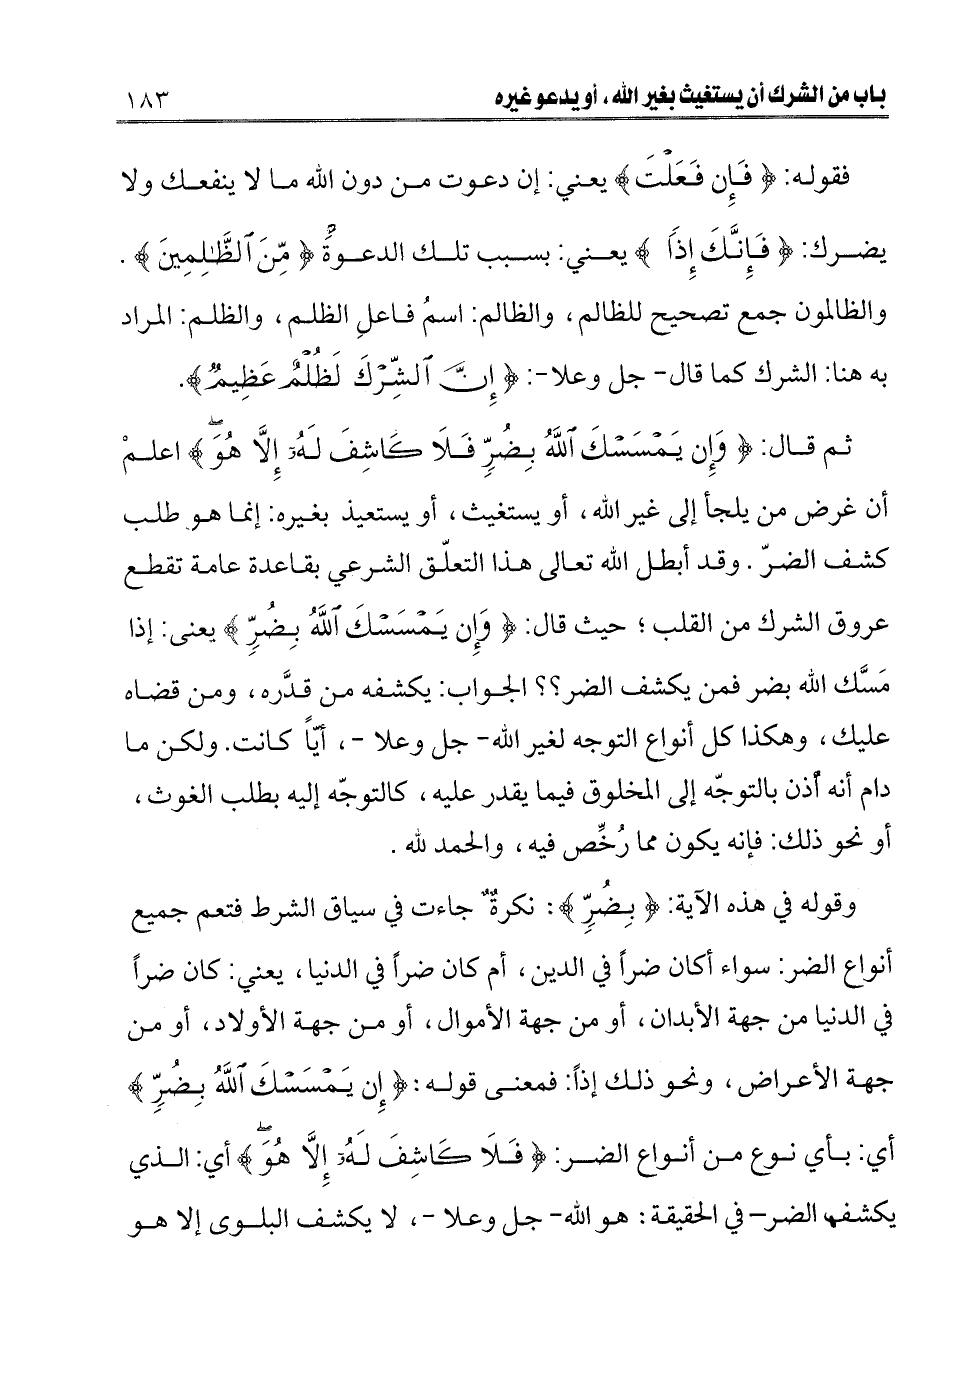 باب من الشرك أن يستغيث بغير الله ، أو يدعو غيره ١٨٣
فقوله: ﴿ فَإِن فَعَلْتَ ﴾ يعني: إن دعوت من دون الله ما لا ينفعك ولا
يضرك: ﴿ فَإِنَّكَ إِذًا ﴾ يعني: بسبب تلك الدعوة ﴿ مِّنَ ٱلظَّٰلِمِينَ ﴾ .
والظالمون جمع تصحيح للظالم ، والظالم: اسمُ فاعلِ الظلم ، والظلم: المراد
به هنا: الشرك كما قال- جل وعلا-: ﴿ إِنَّ ٱلشِّرْكَ لَظُلْمٌ عَظِيمٌ ﴾.
ثم قال: ﴿ وَإِن يَمْسَسْكَ ٱللَّهُ بِضُرٍّ فَلَا كَاشِفَ لَهُۥٓ إِلَّا هُوَۖ ﴾ اعلمْ
أن غرض من يلجأ إلى غير الله ، أو يستغيث ، أو يستعيذ بغيره: إنما هو طلب
كشف الضرّ . وقد أبطل الله تعالى هذا التعلّق الشرعي بقاعدة عامة تقطع
عروق الشرك من القلب ؛ حيث قال: ﴿ وَإِن يَمْسَسْكَ ٱللَّهُ بِضُرٍّ ﴾ يعنى: إذا
مَسَّك الله بضر فمن يكشف الضر؟؟ الجواب: يكشفه من قدَّره ، ومن قضاه
عليك ، وهكذا كل أنواع التوجه لغير الله- جل وعلا -، أيّاً كانت. ولكن ما
دام أنه أذن بالتوجّه إلى المخلوق فيما يقدر عليه ، كالتوجّه إليه بطلب الغوث ،
أو نحو ذلك: فإنه يكون مما رُخِّص فيه ، والحمد لله .
وقوله في هذه الآية: ﴿ بِضُرٍّ ﴾: نكرةٌ جاءت في سياق الشرط فتعم جميع
أنواع الضر: سواء أكان ضراً في الدين ، أم كان ضراً في الدنيا ، يعني: كان ضراً
في الدنيا من جهة الأبدان ، أو من جهة الأموال ، أو من جهة الأولاد ، أو من
جهة الأعراض ، ونحو ذلك إذاً: فمعنى قوله: ﴿ إِن يَمْسَسْكَ ٱللَّهُ بِضُرٍّ ﴾
أي: بأي نوع من أنواع الضر: ﴿ فَلَا كَاشِفَ لَهُۥٓ إِلَّا هُوَۖ ﴾ أي: الذي
يكشف الضر– في الحقيقة: هو الله- جل وعلا -، لا يكشف البلوى إلا هو